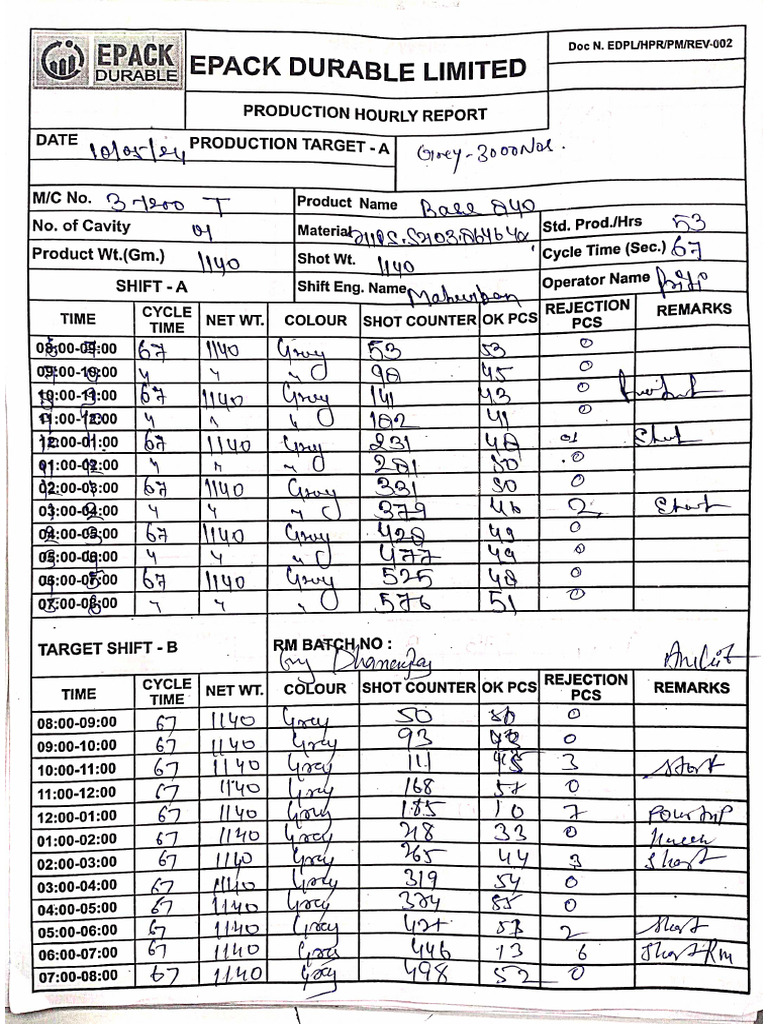 EPACK DURABLE EPACK DURABLE LIMITED Doc N. EDPL/HPR/PM/REV-002
PRODUCTION HOURLY REPORT
DATE 10/05/24 PRODUCTION TARGET - A Grey - 3000 Nos.
M/C No. 3 Product Name Base
No. of Cavity 01 Material Std. Prod./Hrs 53
Product Wt.(Gm.) 1140 Shot Wt. 1140 Cycle Time (Sec.) 67
SHIFT - A Shift Eng. Name Operator Name
TIME CYCLE TIME NET WT. COLOUR SHOT COUNTER OK PCS REJECTION PCS REMARKS
08:00-09:00 67 1140 Grey 53 53 0
09:00-10:00 〃 〃 〃 98 45 0
10:00-11:00 67 1140 Grey 141 43 0
11:00-12:00 〃 〃 〃 182 41 0
12:00-01:00 67 1140 Grey 231 48 01 Short
01:00-02:00 〃 〃 〃 281 50 0
02:00-03:00 67 1140 Grey 331 50 0
03:00-04:00 〃 〃 〃 379 46 2 Short
04:00-05:00 67 1140 Grey 428 49 0
05:00-06:00 〃 〃 〃 477 49 0
06:00-07:00 67 1140 Grey 525 48 0
07:00-08:00 〃 〃 〃 576 51 0
TARGET SHIFT - B RM BATCH NO :
Dhananjay Ankit
TIME CYCLE TIME NET WT. COLOUR SHOT COUNTER OK PCS REJECTION PCS REMARKS
08:00-09:00 67 1140 Grey 50 50 0
09:00-10:00 67 1140 Grey 93 43 0
10:00-11:00 67 1140 Grey 111 3 Short
11:00-12:00 67 1140 Grey 168 57 0
12:00-01:00 67 1140 Grey 185 10 7 Power trip
01:00-02:00 67 1140 Grey 218 33 0
02:00-03:00 67 1140 Grey 265 44 3 Short
03:00-04:00 67 1140 Grey 319 54 0
04:00-05:00 67 1140 Grey 55 0
05:00-06:00 67 1140 Grey 53 2 Short
06:00-07:00 67 1140 Grey 446 13 6 Short Rm
07:00-08:00 67 1140 Grey 498 52 0